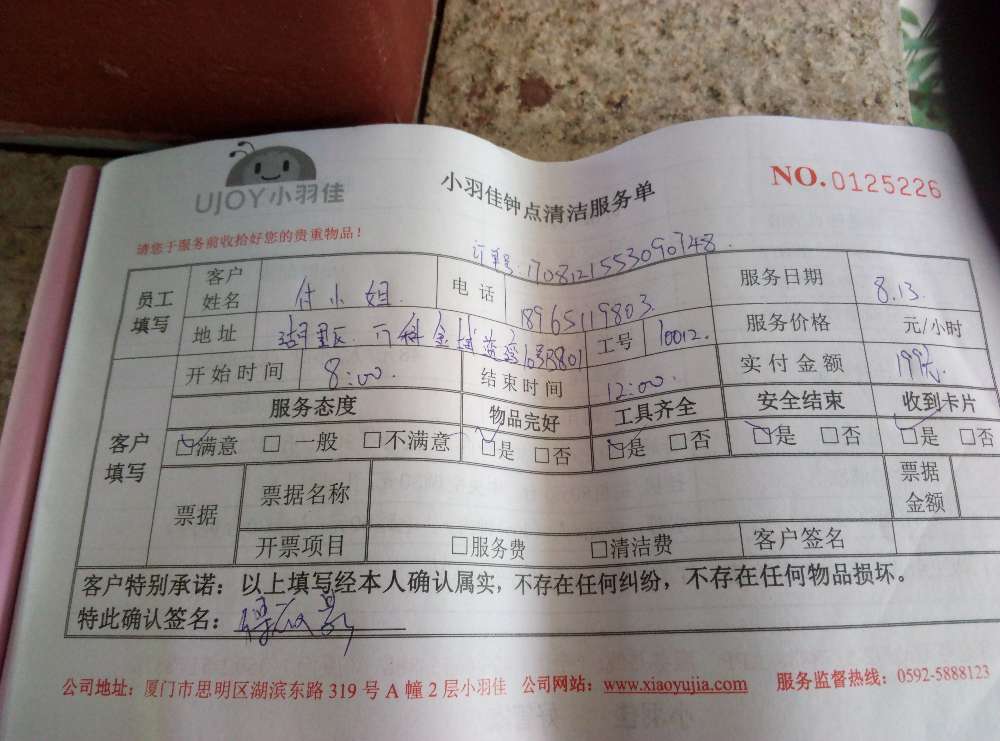 UJOY小羽佳
小羽佳钟点清洁服务单
NO.0125226
请您于服务前收拾好您的贵重物品！
订单号:1708121553090748
员工填写 客户姓名 付小姐 电话 18965119803 服务日期 8.13.
地址 湖里区 万科金域蓝湾10号B801 工号 10012. 服务价格 元/小时
开始时间 8:00. 结束时间 12:00. 实付金额 199元.
客户填写 服务态度 物品完好 工具齐全 安全结束 收到卡片
☑满意 □一般 □不满意 ☑是 □否 ☑是 □否 ☑是 □否 ☑是 □否
票据 票据名称 票据金额
开票项目 □服务费 □清洁费 客户签名
客户特别承诺：以上填写经本人确认属实，不存在任何纠纷，不存在任何物品损坏。
特此确认签名：
公司地址：厦门市思明区湖滨东路 319 号 A 幢 2 层小羽佳 公司网站：www.xiaoyujia.com 服务监督热线：0592-5888123